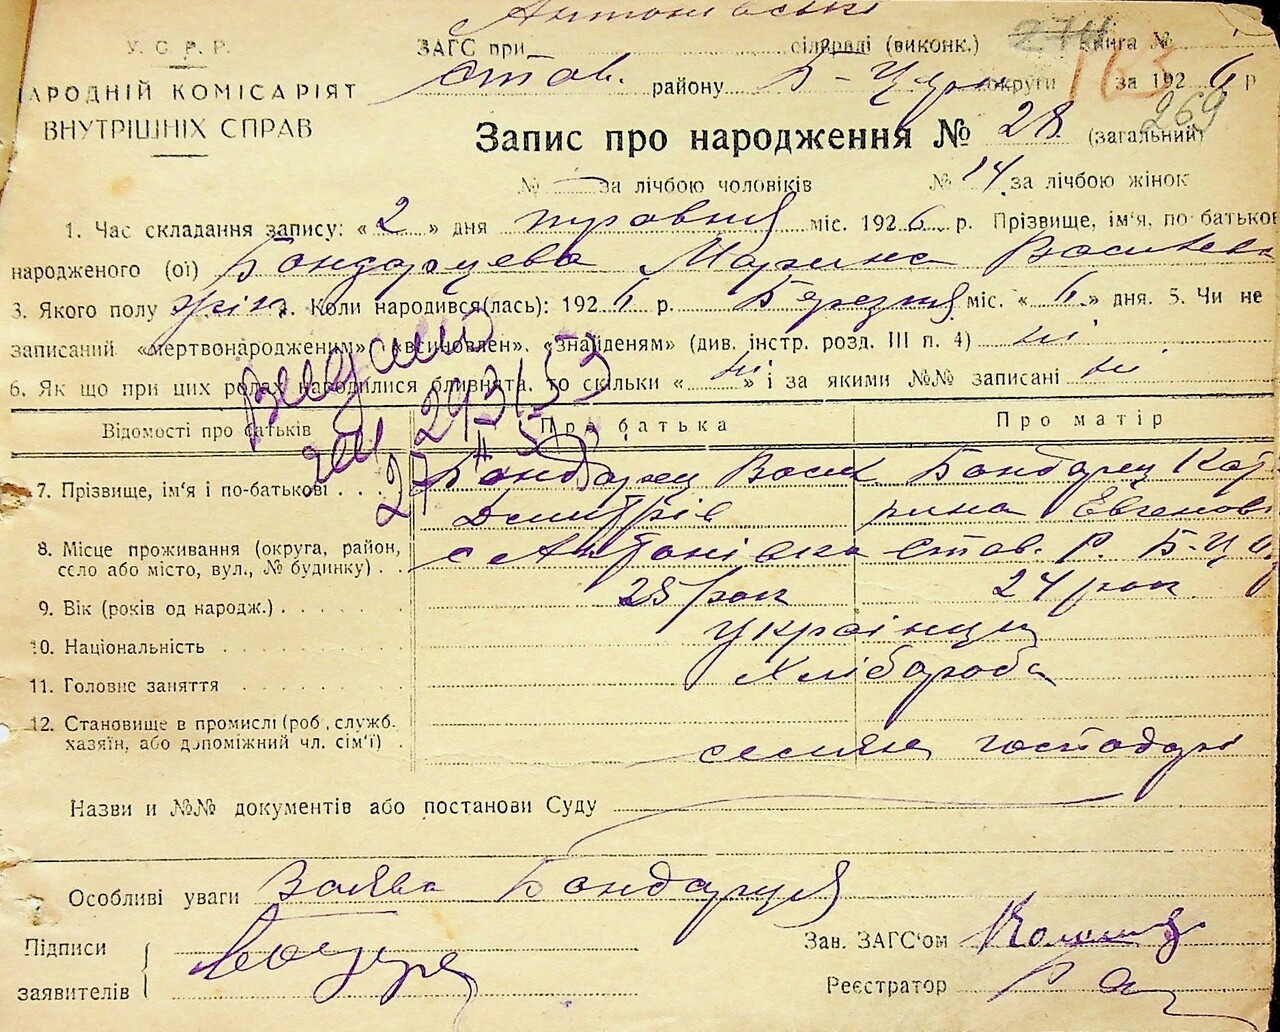 Антонівські
У. С. Р. Р.
ЗАГС при сільраді (виконк.) 274 Книга №
Став. району Б-Церк округи 163 за 1926 р
НАРОДНІЙ КОМІСАРІЯТ
ВНУТРІШНІХ СПРАВ
269
Запис про народження № 28 (загальний)
№ — за лічбою чоловіків № 14 за лічбою жінок
1. Час складання запису: «2» дня травня міс. 1926 р. Прізвище, ім'я, по-батькові
народженого (ої) Бондарцева Марина Василева
3. Якого полу жін. 4. Коли народився(лась): 1926 р. Березня міс. «6» дня. 5. Чи не
записаний «мертвонародженим» «всиновлен», «знайденям» (див. інстр. розд. III п. 4) ні
6. Як що при цих родах народилися близнята, то скільки «ні» і за якими №№ записані ні
293/53
27
Відомості про батьків Про батька Про матір
7. Прізвище, ім'я і по-батькові . . . Бондарец Васил Бондарец Кат
Дмитрів рина Евгенов
8. Місце проживання (округа, район,
село або місто, вул., № будинку) . . с Антонівка Став. Р. Б-Ц О
9. Вік (років од народж.) . . . . . 25 рок 24 рок
10. Національність . . . . . . . . українци
11. Головне заняття . . . . . . . Хлібороба
12. Становище в промислі (роб., служб.
хазяїн, або допоміжний чл. сім'ї) .
господарі
Назви и №№ документів або постанови Суду
Особливі уваги Заява Бондарця
Підписи
заявителів
Зав. ЗАГС'ом
Реєстратор